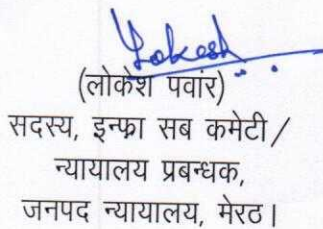 Lokesh
(लोकेश पवांर)
सदस्य, इन्फ्रा सब कमेटी /
न्यायालय प्रबन्धक,
जनपद न्यायालय, मेरठ।